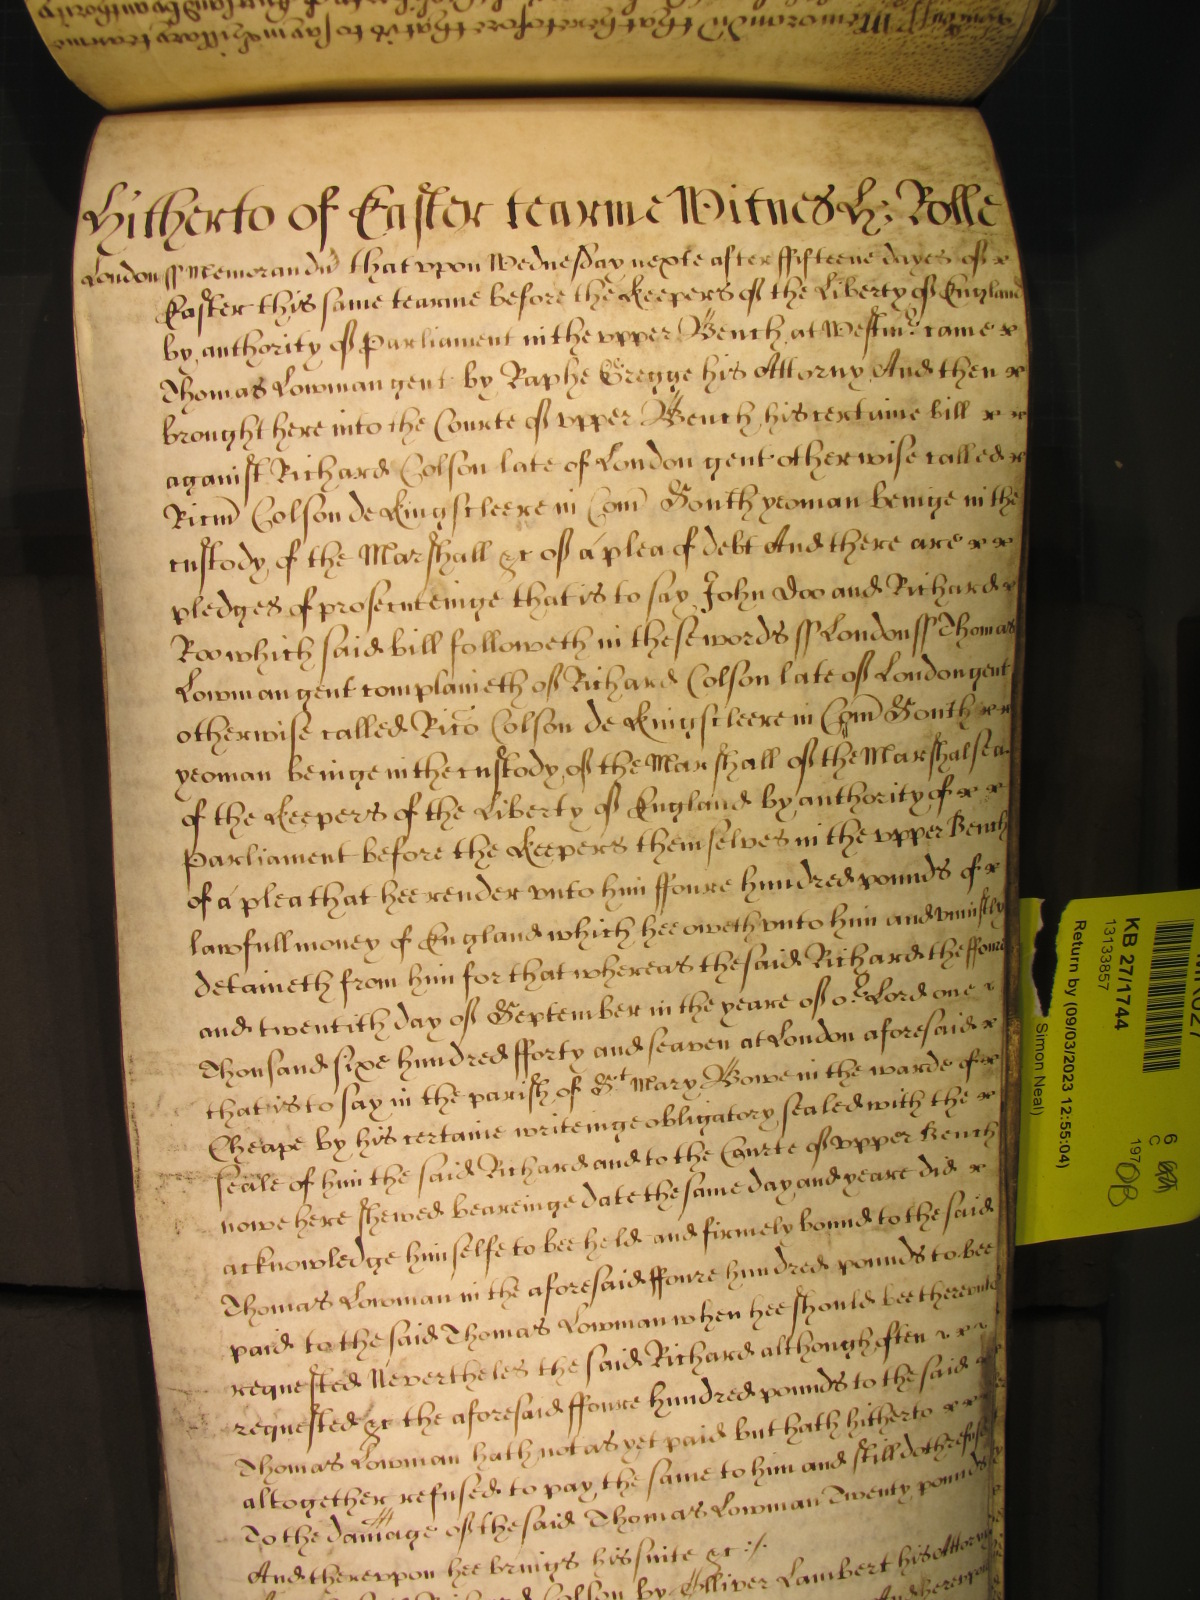 Hitherto of Easter tearme Witnes H: Rolle
London ss Memorandũ that vpon Wednesday nexte after ffifteene dayes of
Easter this same tearme before the Keepers of the Liberty of England
by authority of Parliament in the vpper Bench at Westmr came
Thomas Lowman gent by Raphe Gregge his Attorny And then
brought here into the Courte of vpper Bench his certaine bill
against Richard Colson late of London gent otherwise called
Ricm̃ Colson de Kingscleere in Com̃ South yeoman beinge in the
custody of the Marshall &c of a plea of debt And there are
pledges of prosecuteinge that is to say John Doo and Richard
Roo which said bill followeth in these words ss London ss Thomas
Lowman gent complaineth of Richard Colson late of London gent
otherwise called Ricõ Colson de Kingscleere in Com̃ South
yeoman beinge in the custody of the Marshall of the Marshalsea
of the Keepers of the Liberty of England by authority of
Parliament before the Keepers themselves in the vpper Bench
of a plea that hee render vnto him ffoure hundred pounds of
lawfull money of England which hee oweth vnto him and vniustly
detaineth from him for that whereas the said Richard the ffoure
and twentith day of September in the yeare of or Lord one
Thousand sixe hundred fforty and seaven at London aforesaid
that is to say in the parish of St Mary Bowe in the warde of
Cheape by his certaine writeinge obligatory sealed with the
seale of him the said Richard and to the Courte of vpper Bench
nowe here shewed beareinge date the same day and yeare did
acknowledge himselfe to bee held and firmely bound to the said
Thomas Lowman in the aforesaid ffoure hundred pounds to bee
paid to the said Thomas Lowman when hee should bee therevnto
requested Nevertheles the said Richard although often
requested &c the aforesaid ffoure hundred pounds to the said
Thomas Lowman hath not as yet paid but hath hitherto
altogether refused to pay the same to him and still doth refuse
To the damage of the said Thomas Lowman Twenty pounds
And therevpon hee brings his suite &c :/.
Colson by Olliver Lambert his Attorny
KB 27/1744
13133857
Return by (09/03/2023 12:55:04)
Simon Neal)
6
C
197